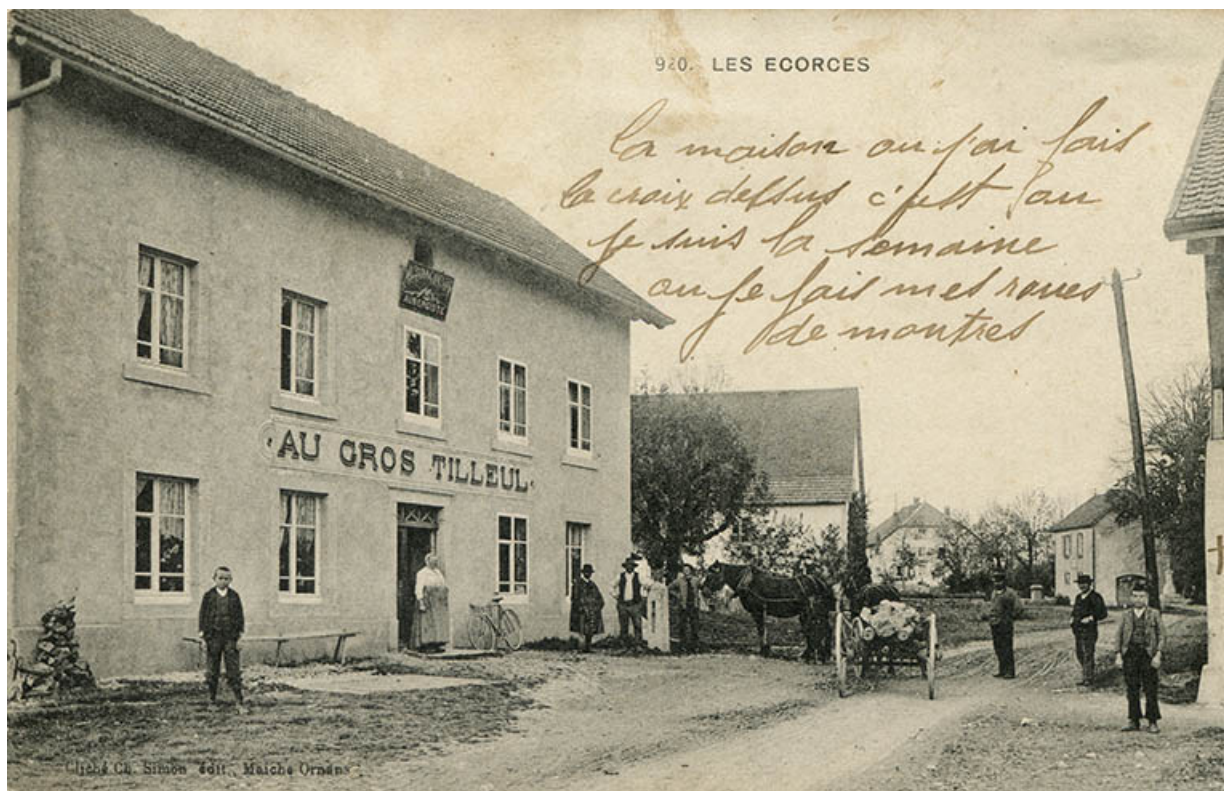 920. LES ECORCES
la maison ou j'ai fais
la croix dessus c'est ou
je suis la semaine
ou je fais mes roues
de montres
AUBERGISTE
AU GROS TILLEUL
Cliché Ch. Simon édit., Maiche Ornans